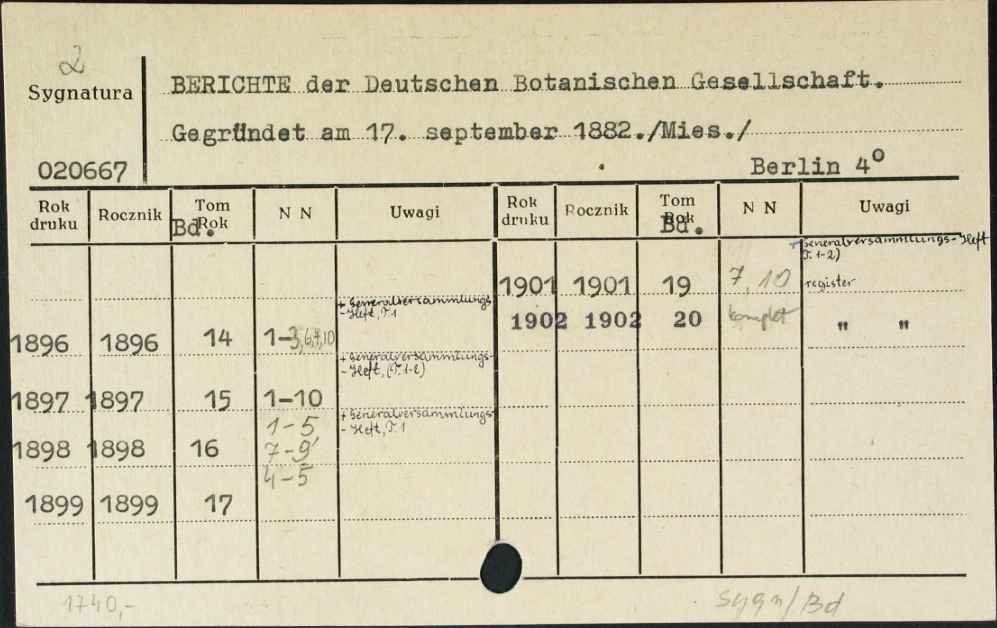 2
Sygnatura
BERICHTE der Deutschen Botanischen Gesellschaft.
Gegründet am 17. september 1882./Mies./
020667
Berlin 4º
Rok druku Rocznik Tom Rok Bd. N N Uwagi Rok druku Rocznik Tom Rok Bd. N N Uwagi
+ Generalversammlungs-Heft
(T. 1-2)
1901 1901 19 7, 10 register
+ Generalversammlungs
-Heft, T. 1
1902 1902 20 komplet " "
1896 1896 14 1-3,6,7,10
+ Generalversammlungs-
-Heft, (T. 1-2)
1897 1897 15 1-10
+ Generalversammlungs-
-Heft, T. 1
1-5
1898 1898 16 7-9
4-5
1899 1899 17
1740,-
sygn/Bd